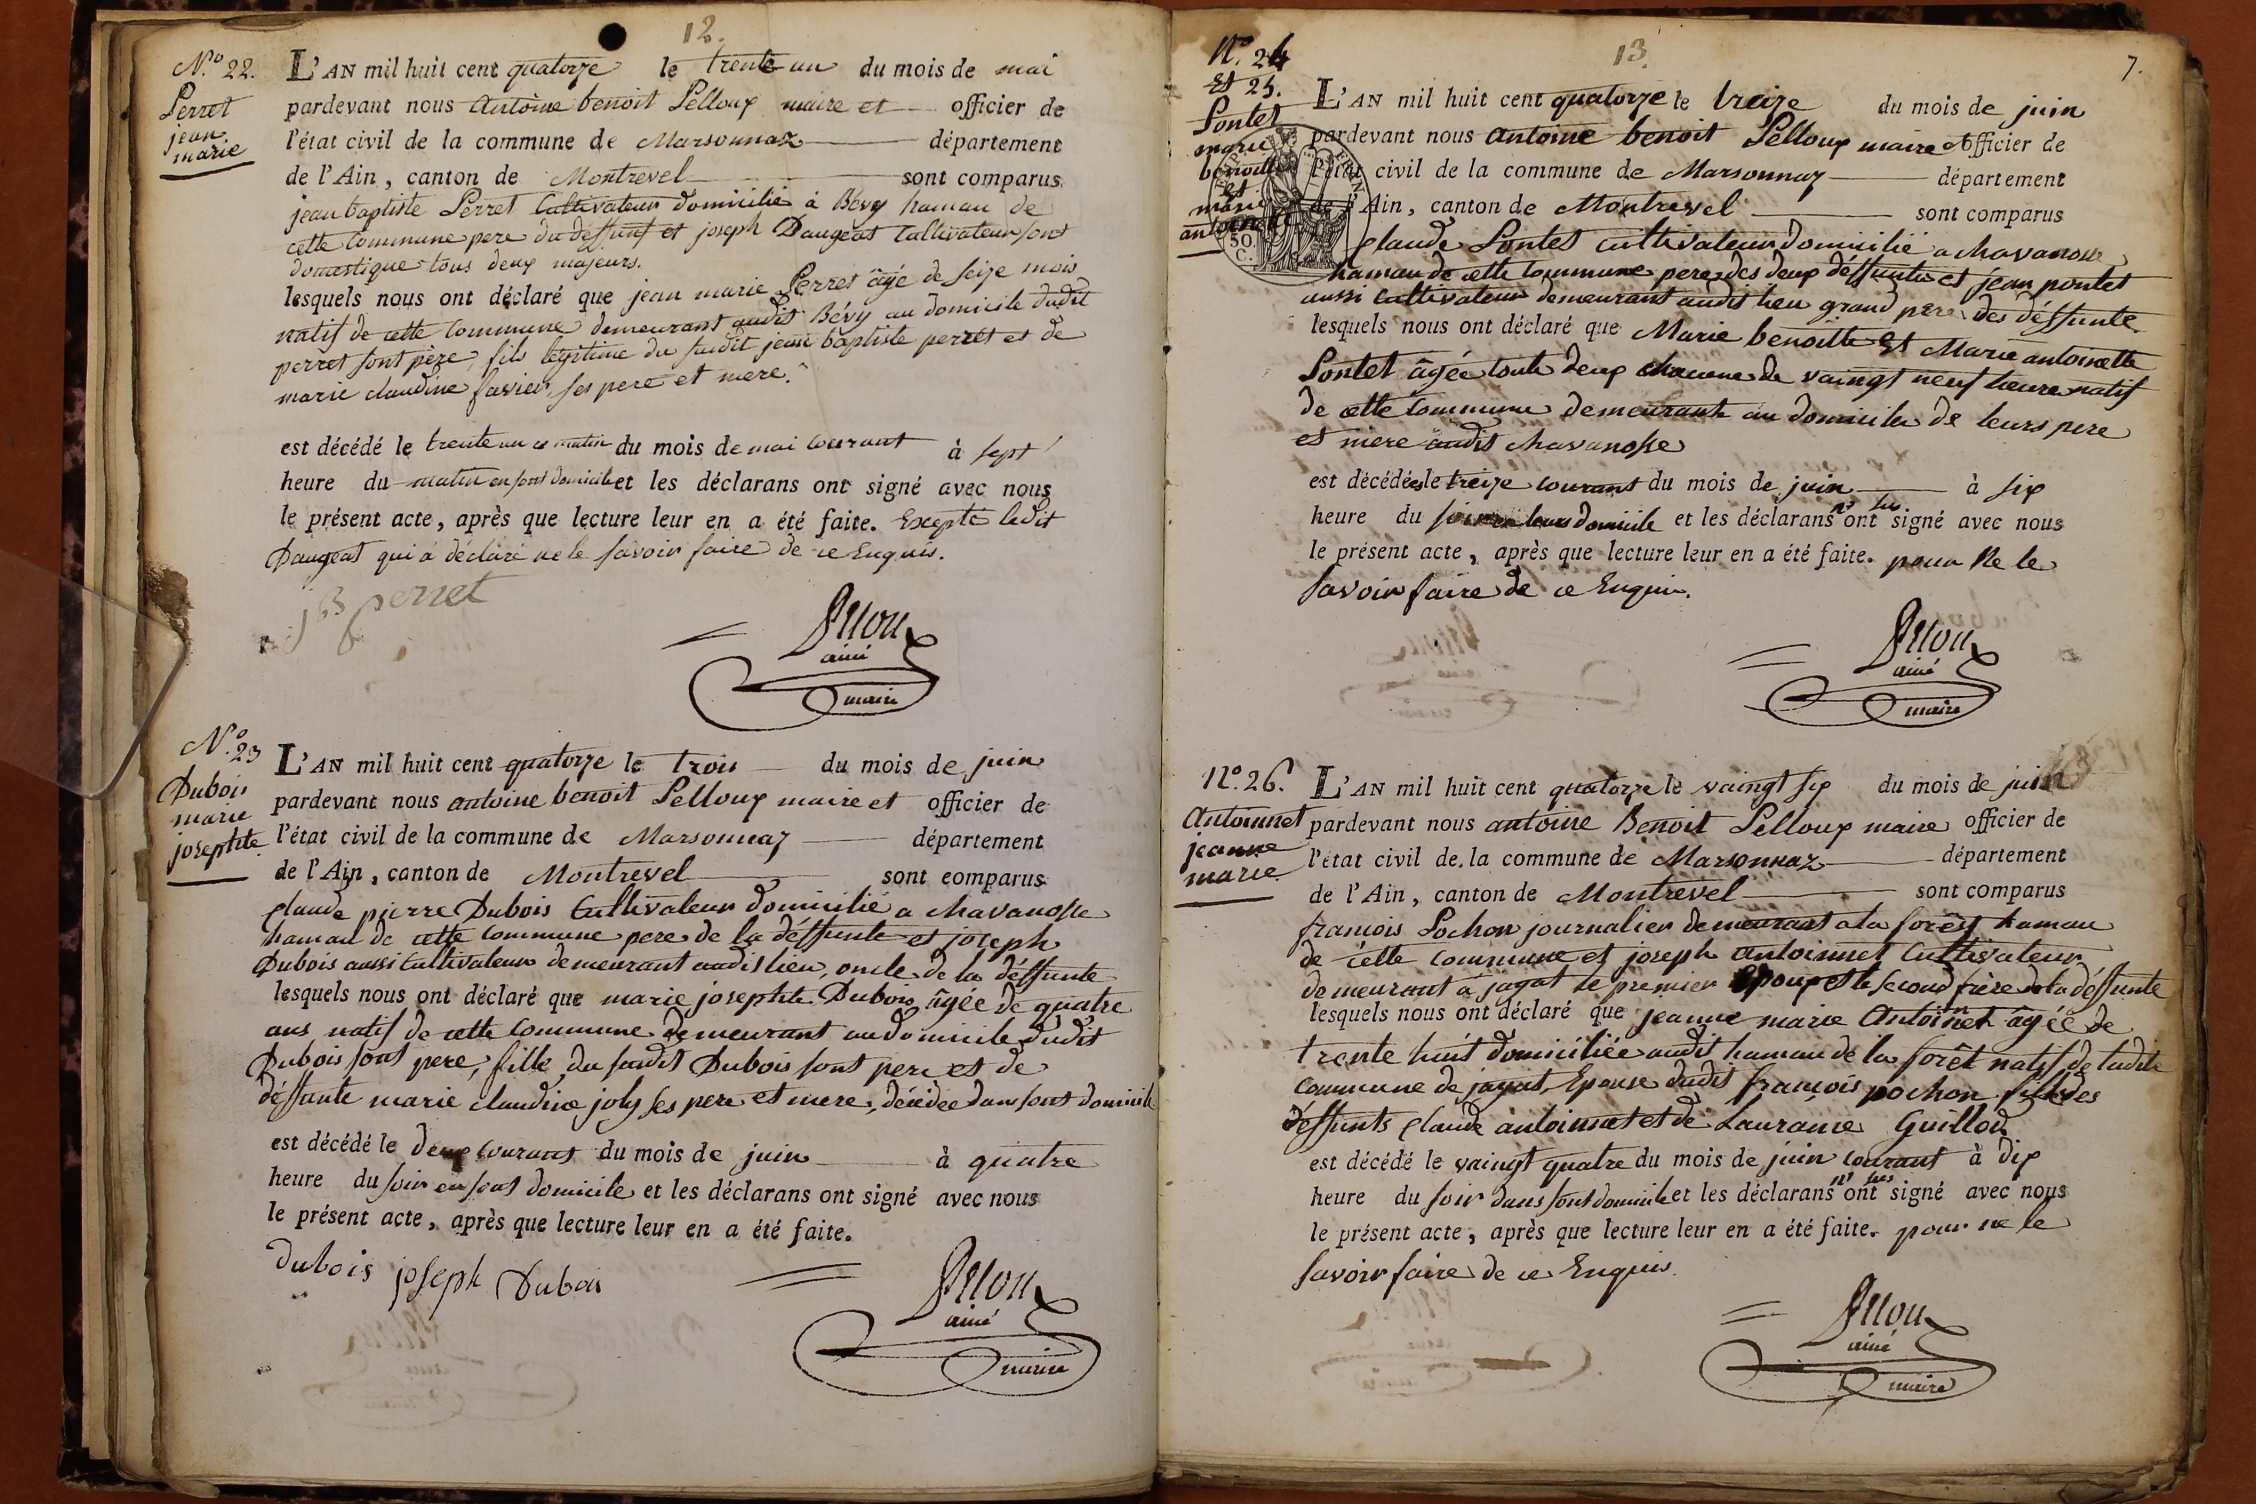 12.
N.º 22.
Perret
jean
marie
L'AN mil huit cent quatorze le trente un du mois de mai
pardevant nous Antoine benoit Pelloux maire et officier de
l'état civil de la commune de Marsonnax département
de l'Ain, canton de Montrevel sont comparus
jean baptiste Perret Cultivateur domicilié à Bévy hamau de
cette Commune pere du deffunt et joseph Daugeat Cultivateur sont
domestique tous deux majeurs.
lesquels nous ont déclaré que jean marie Perret âgé de seize mois
natif de cette Commune demeurant audit Bévy au domicile dudit
perret sont père, fils légitime du susdit jean baptiste perret et de
marie claudine favier ses pere et mere.
est décédé le trente un ce matin du mois de mai courant à sept
heure du matin en sont domicile et les déclarans ont signé avec nous
le présent acte, après que lecture leur en a été faite. Excepté ledit
Daugeat qui a déclaré ne le savoir faire de ce Enquis.
jB perret
Pelloux
ainé
maire
N.º 23
Dubois
marie
josephte
L'AN mil huit cent quatorze le trois du mois de juin
pardevant nous antoine benoit Pelloux maire et officier de
l'état civil de la commune de Marsonnaz département
de l'Ain, canton de Montrevel sont comparus
Claude pierre Dubois Cultivateur domicilié a chavanosse
hamau de cette commune pere de la déffunte et joseph
Dubois aussi Cultivateur demeurant audit lieu, oncle de la déffunte
lesquels nous ont déclaré que marie josephte Dubois âgée de quatre
ans natif de cette Commune demeurant au domicile dudit
Dubois sont pere, fille du susdit Dubois sont pere et de
déffunte marie claudine joly ses pere et mere, décédée dans sont domicile
est décédé le deux courant du mois de juin à quatre
heure du soir en sont domicile et les déclarans ont signé avec nous
le présent acte, après que lecture leur en a été faite.
Dubois joseph Dubois
Pelloux
ainé
maire
13.
7.
N.º 24
et 25.
Pontet
marie
benoitte
et
marie
antoinette
50.
C.
L'AN mil huit cent quatorze le treize du mois de juin
pardevant nous antoine benoit Pelloux maire et officier de
l'état civil de la commune de Marsonnaz département
de l'Ain, canton de Montrevel sont comparus
Claude Pontet cultivateur domicilié a chavanosse
hamau de cette Commune pere des deux déffuntes et jean pontet
aussi Cultivateur demeurant audit lieu grand pere des déffunte
lesquels nous ont déclaré que Marie benoitte et Marie antoinette
Pontet âgée toute deux chacune de vaingt neuf heure natif
de cette Commune demeurante au domicile de leurs pere
et mere audit chavanosse
est décédées le treize courant du mois de juin à six
heure du soir en leurs domicile et les déclarans n'ont sus signé avec nous
le présent acte, après que lecture leur en a été faite. pour Ne le
savoir faire de ce Enquis.
Pelloux
ainé
maire
N.º 26.
Antoinnet
jeanne
marie
L'AN mil huit cent quatorze le vaingt six du mois de juin
pardevant nous antoine Benoit Pelloux maire officier de
l'état civil de la commune de Marsonnaz département
de l'Ain, canton de Montrevel sont comparus
francois Pochon journalier demeurant a la forêt hamau
de cette commune et joseph antoinnet Cultivateur
demeurant a jayat le premier Epoux et le second frère de la déffunte
lesquels nous ont déclaré que jeanne marie Antoinnet âgée de
trente huit domiciliée audit hamau de la forêt natif de ludite
commune de jayat, Epouse dudit francois pochon fille des
déffunts Claude antoinnet et de Lauranie Guillod
est décédé le vaingt quatre du mois de juin courant à dix
heure du soir dans sont domicile et les déclarans n'ont sus signé avec nous
le présent acte, après que lecture leur en a été faite. pour ne le
savoir faire de ce Enquis.
Pelloux
ainé
maire